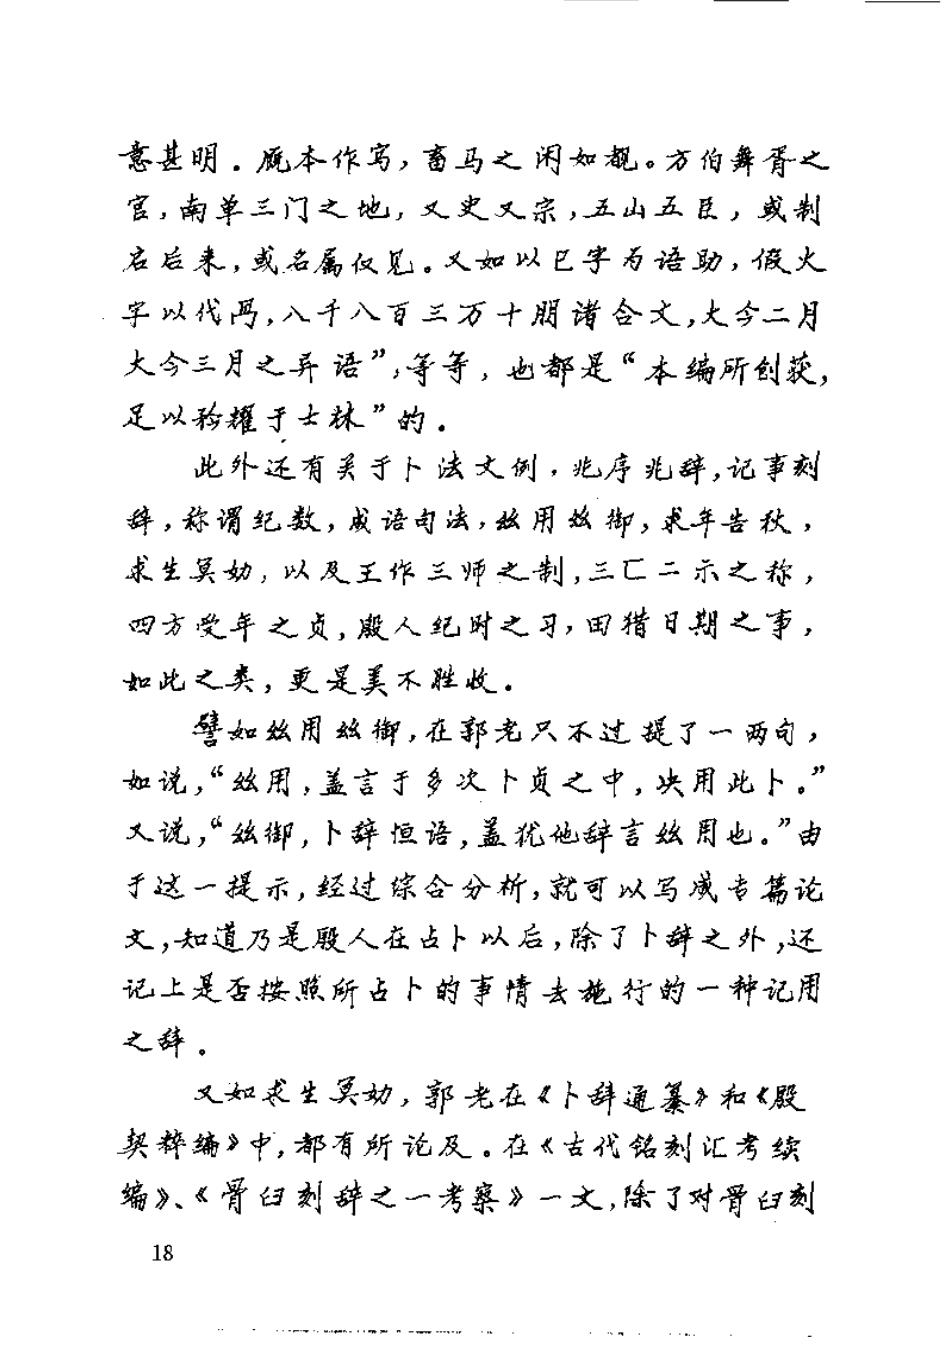 意甚明。厩本作写，畜马之闲如觏。方伯舞胥之
官，南单三门之地，又史又宗，五山五臣，或制
启后来，或名属仅见。又如以巳字为语助，假火
字以代祸，八千八百三万十朋诸合文，大今二月
大今三月之异语”，等等，也都是“本编所创获，
足以矜耀于士林”的。
此外还有关于卜法文例，兆序兆辞，记事刻
辞，称谓纪数，成语句法，兹用兹御，求年告秋，
求生冥妫，以及王作三师之制，三匚二示之称，
四方受年之贞，殷人纪时之习，田猎日期之事，
如此之类，更是美不胜收。
譬如兹用兹御，在郭老只不过提了一两句，
如说，“兹用，盖言于多次卜贞之中，决用此卜。”
又说，“兹御，卜辞恒语，盖犹他辞言兹用也。”由
于这一提示，经过综合分析，就可以写成专篇论
文，知道乃是殷人在占卜以后，除了卜辞之外，还
记上是否按照所占卜的事情去施行的一种记用
之辞。
又如求生冥妫，郭老在《卜辞通纂》和《殷
契粹编》中，都有所论及。在《古代铭刻汇考续
编》、《骨臼刻辞之一考察》一文，除了对骨臼刻
18